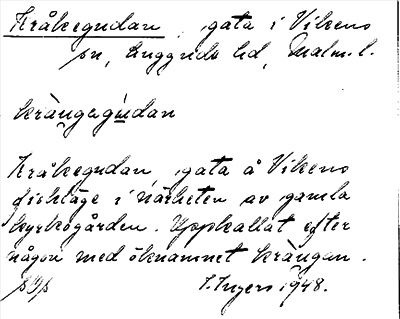 Kråkegudan, gata i Vikens
sn, Luggude hd, Malm. l.
kràngagúdan
Kråkegudan, gata å Vikens
fiskläge i närheten av gamla
kyrkogården. Uppkallat efter
någon med öknamnet kràngan.
I. Ingers 1948.